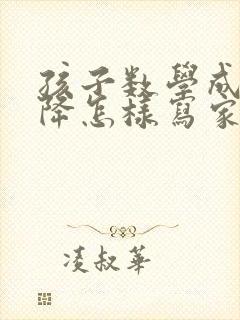 孩子数學成
降怎樣寫家
凌叔華